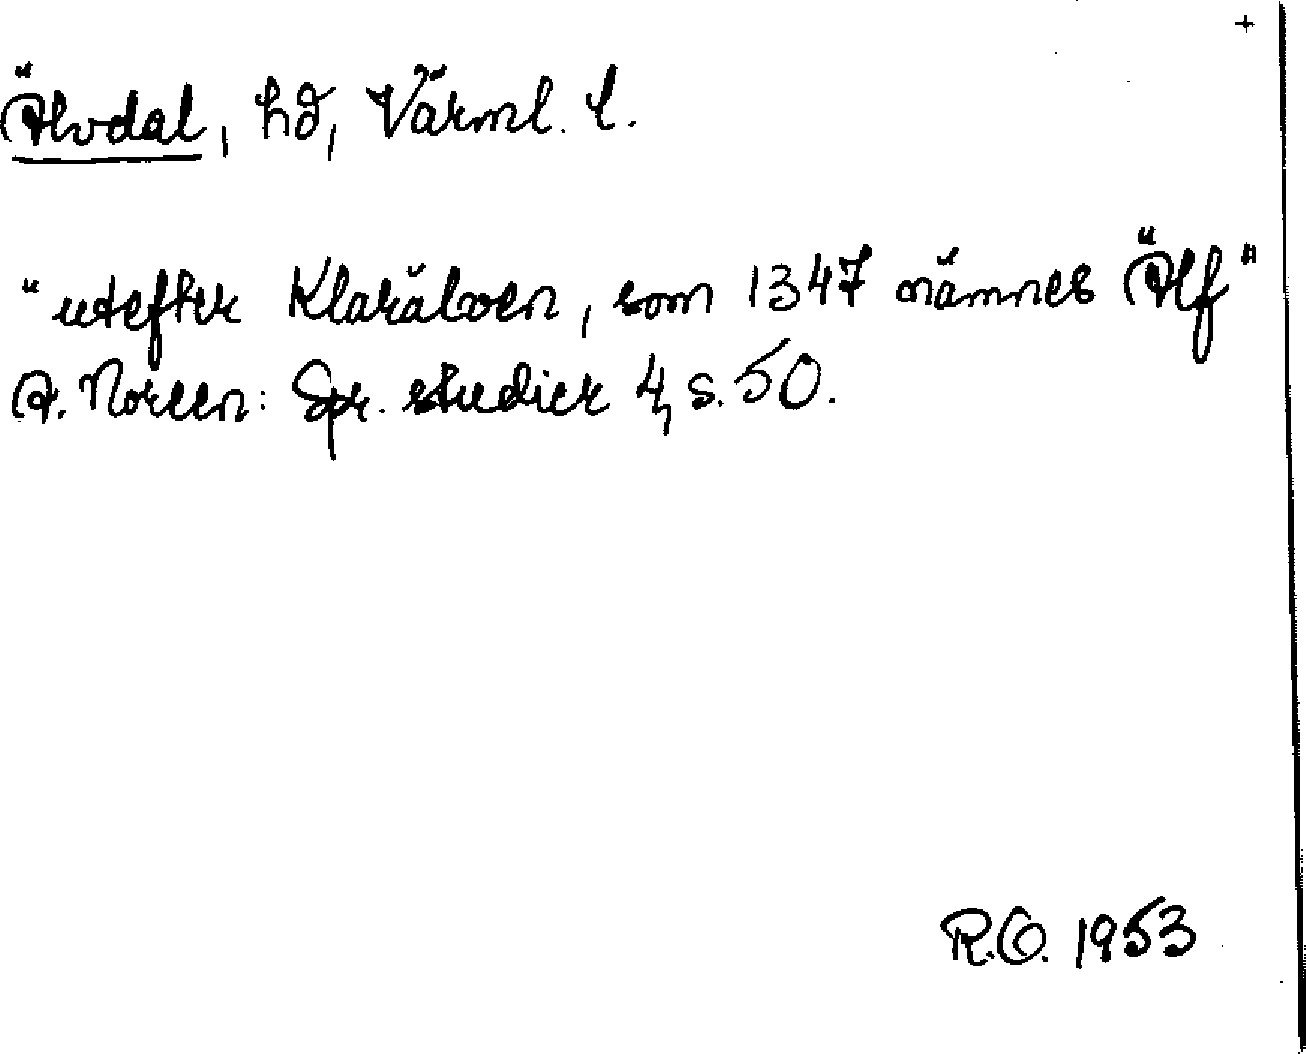 +
Älvdal, hd, Värml. l.
"utefter Klarälven, som 1347 nämnes Älf"
A. Noreen: Spr. studier 4, s. 50.
R.O. 1953